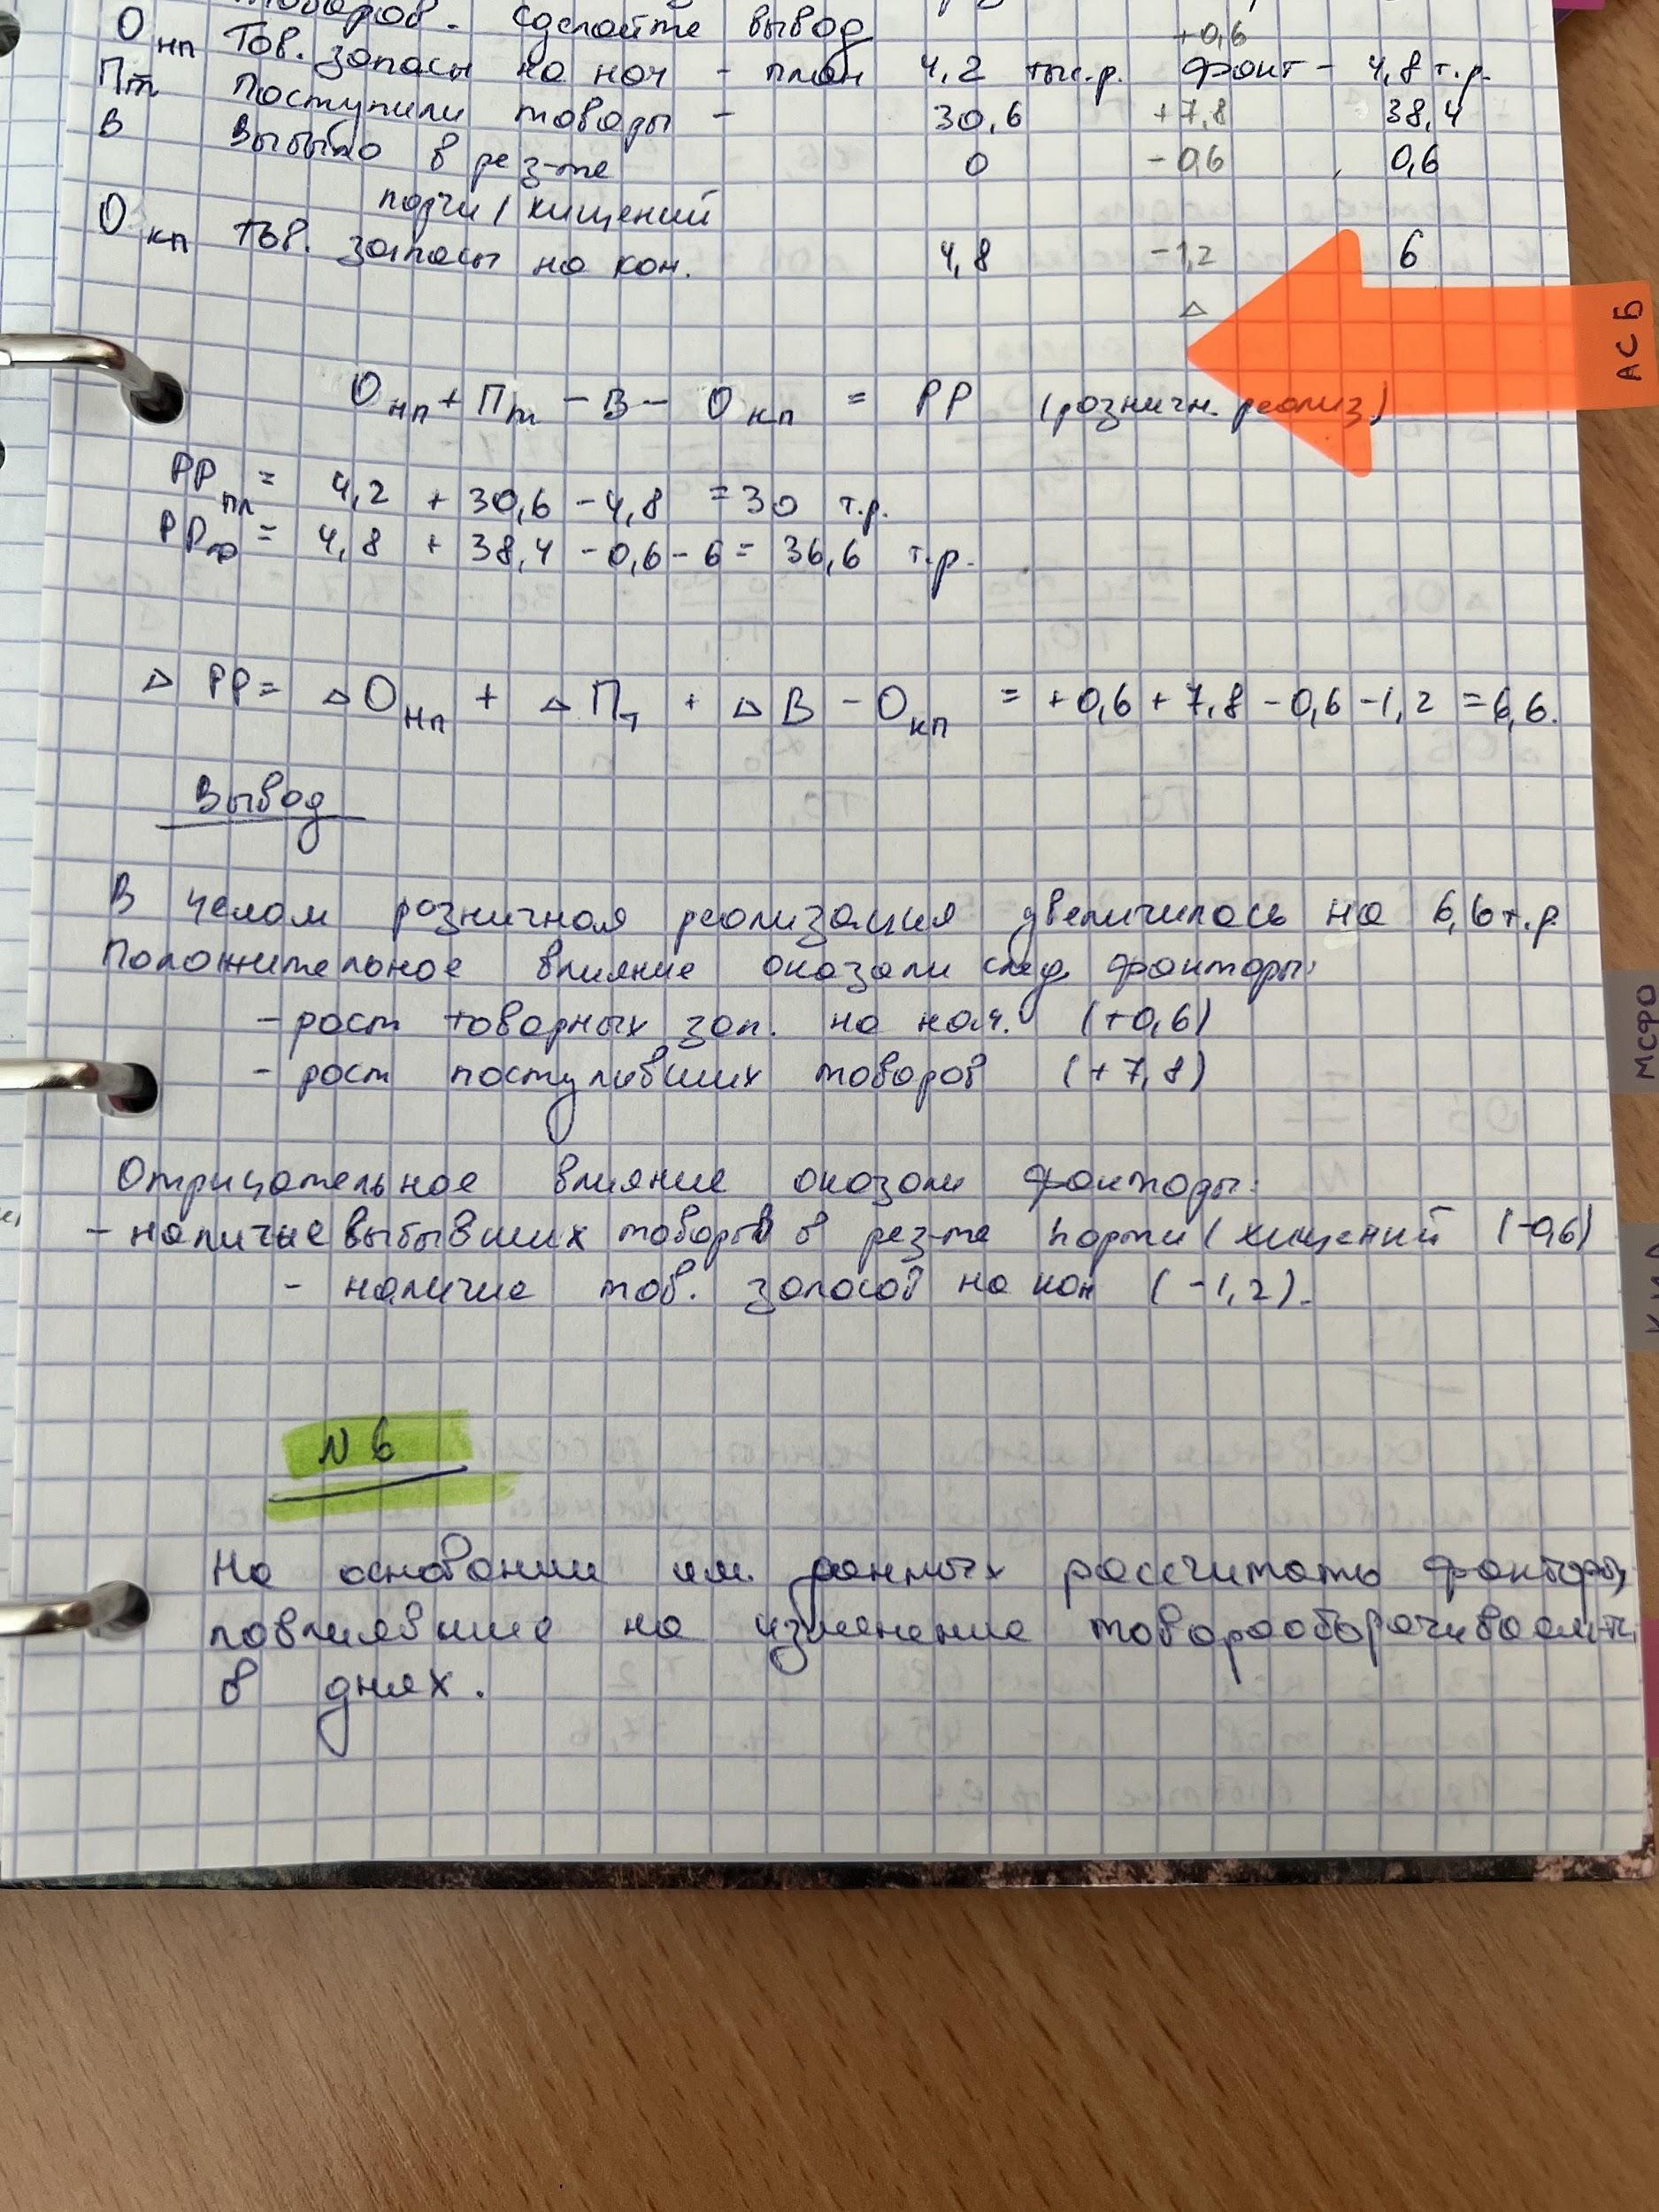 товаров. Сделайте вывод
+0,6
Онп Тов. запасы на нач - план 4,2 тыс.р. факт - 4,8 т.р.
Пт Поступили товары - 30,6 +7,8 38,4
В Выбыло в рез-те 0 -0,6 0,6
порчи / хищений
Окп тов. запасы на кон. 4,8 -1,2 6
Δ
АСБ
Онп + Пт - В - Окп = РР (розничн. реализ)
РРпл = 4,2 + 30,6 - 4,8 = 30 т.р.
РРф = 4,8 + 38,4 - 0,6 - 6 = 36,6 т.р.
Δ РР = ΔОнп + ΔПт + ΔВ - Окп = +0,6 + 7,8 - 0,6 - 1,2 = 6,6.
Вывод
В целом розничная реализация увеличилась на 6,6 т.р
Положительное влияние оказали след. факторы:
- рост товарных зап. на нач. (+0,6)
- рост поступивших товаров (+7,8)
МСФО
Отрицательное влияние оказали факторы:
- наличие выбывших товаров в рез-те порчи / хищений (-0,6)
- наличие тов. запасов на кон (-1,2).
N 6
На основании им. данных рассчитать факторы,
повлиявшие на изменение товарооборачиваем-ти
в днях.